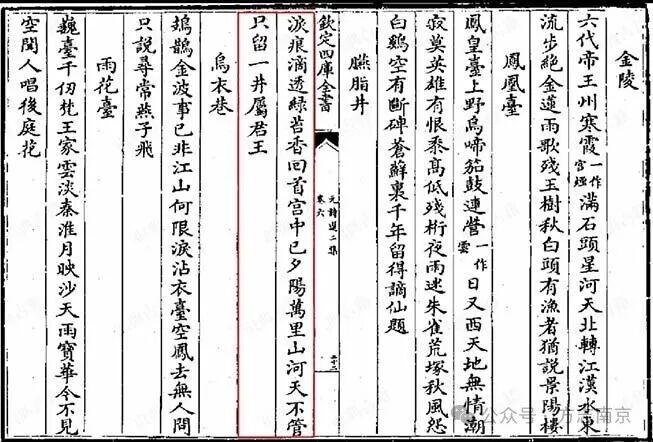 金陵
六代帝王州寒霞一作宮煙滿石頭星河天北轉江漢水東
流步絕金蓮雨歌殘玉樹秋白頭有漁者猶說景陽樓
鳳凰臺
鳳皇臺上野烏啼笳鼓連營一作雲日又西天地無情潮
寂寞英雄有恨黍髙低殘桁夜雨迷朱雀荒塚秋風怨
白鷄空有斷碑蒼蘚裏千年留得謫仙題
臙脂井
欽定四庫全書
元詩選二集
卷六
淚痕滴透綠苔香回首宫中已夕陽萬里山河天不管
只留一井屬君王
烏衣巷
鳷鵲金波事已非江山何限淚沾衣臺空鳳去無人問
只說尋常燕子飛
雨花臺
巍臺千仞梵王家雲淡秦淮月映沙天雨寶華今不見
空聞人唱後庭花
公众号·方志南京